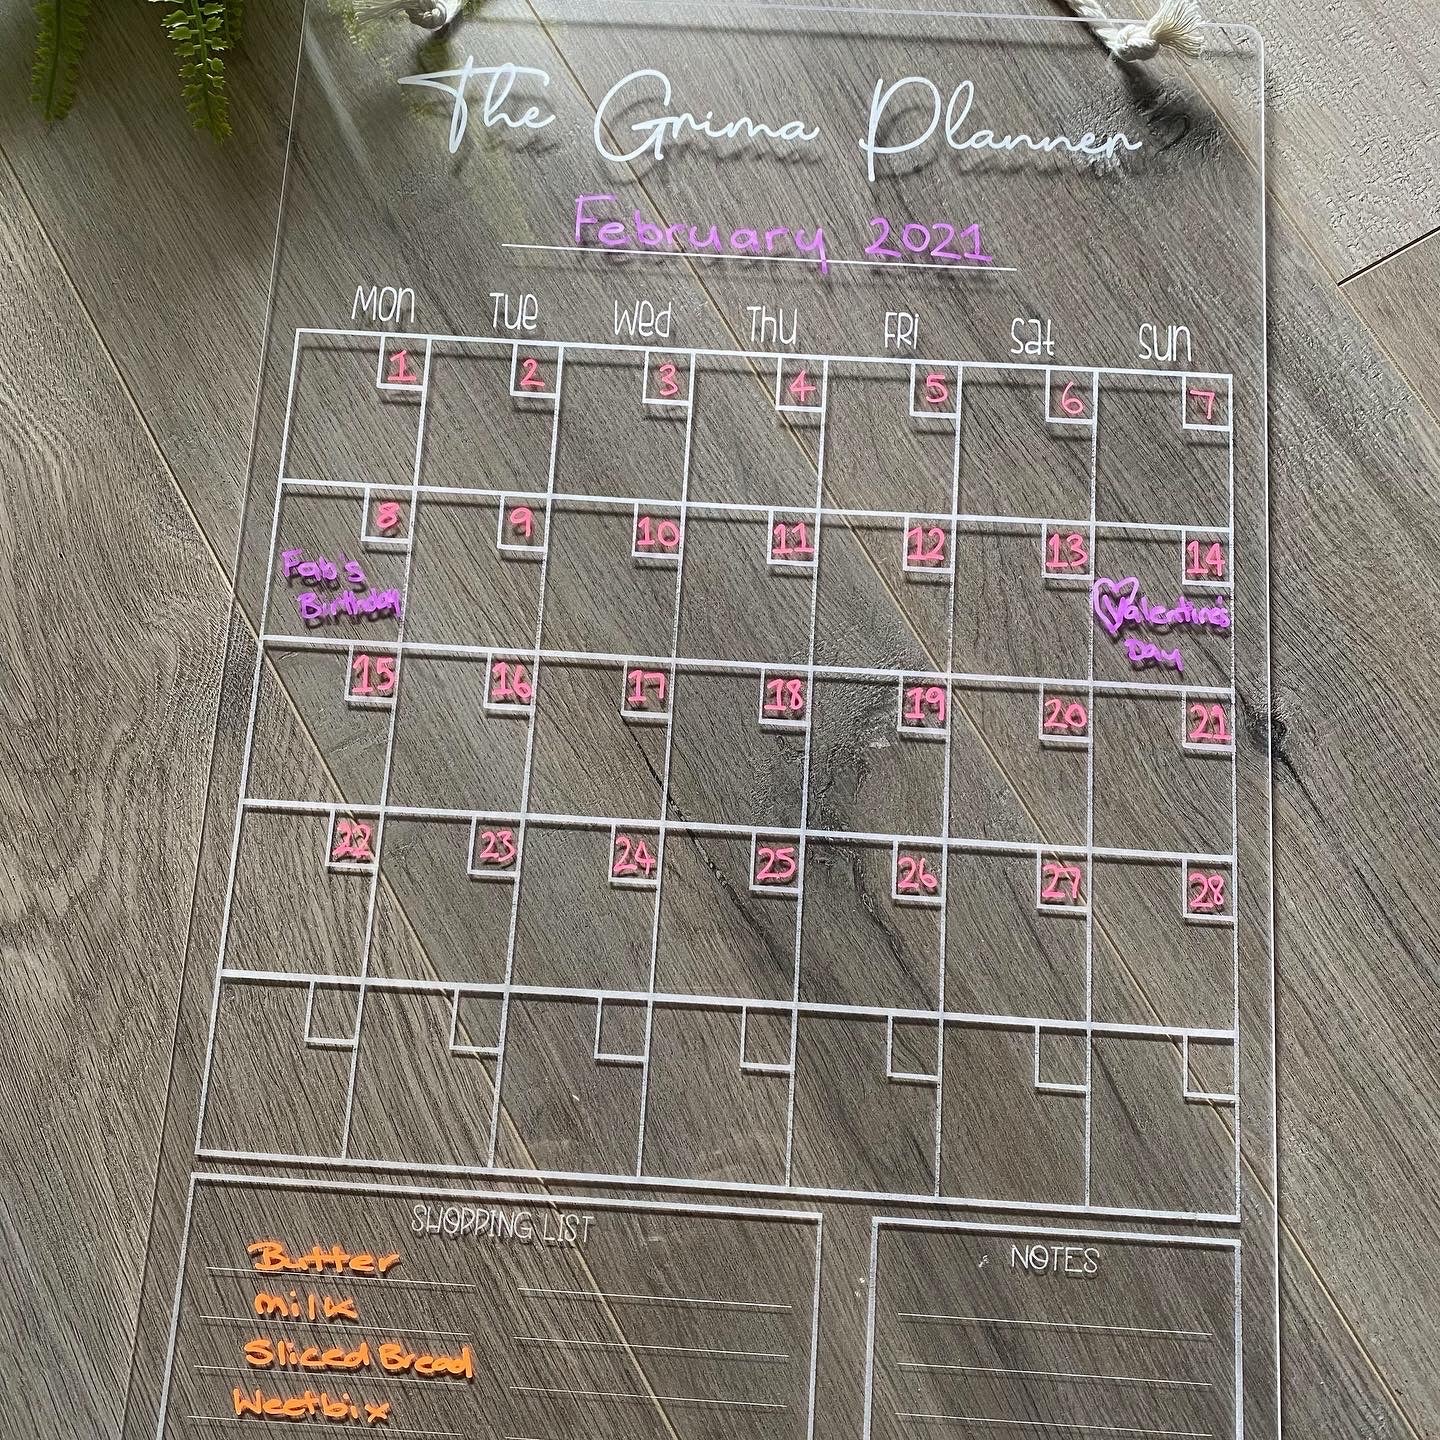 The Grima Planner
February 2021
Mon Tue Wed Thu Fri Sat Sun
1 2 3 4 5 6 7
8 9 10 11 12 13 14
Fab's
Birthday
Valentine's
Day
15 16 17 18 19 20 21
22 23 24 25 26 27 28
SHOPPING LIST
Butter
Milk
Sliced Bread
Weetbix
NOTES